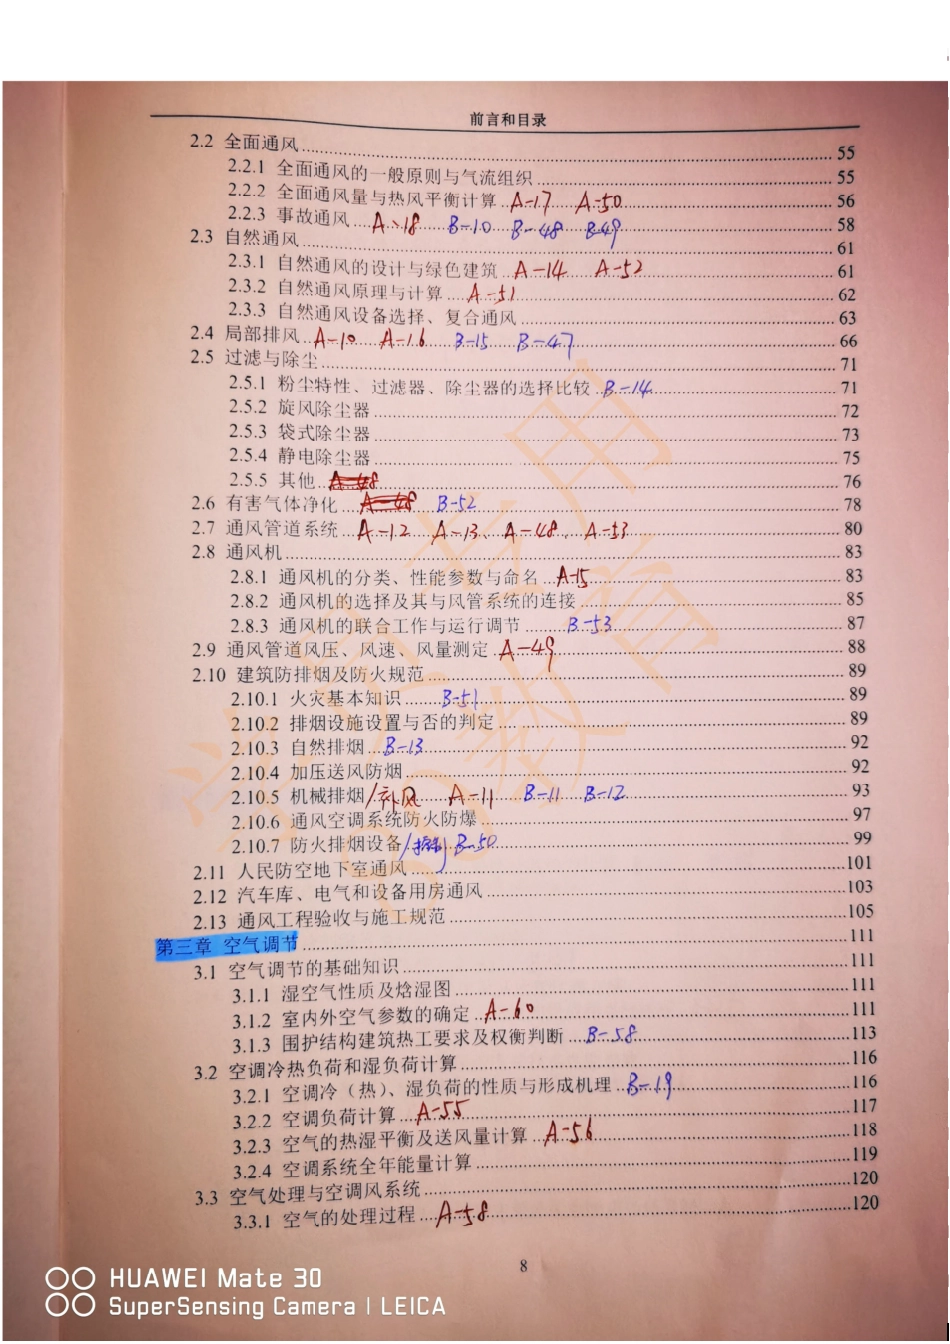 前言和目录
2.2 全面通风 55
2.2.1 全面通风的一般原则与气流组织 55
2.2.2 全面通风量与热风平衡计算 A-17 A-50 56
2.2.3 事故通风 A-18 B-10 B-48 B-49 58
2.3 自然通风 61
2.3.1 自然通风的设计与绿色建筑 A-14 A-52 61
2.3.2 自然通风原理与计算 A-51 62
2.3.3 自然通风设备选择、复合通风 63
2.4 局部排风 A-10 A-16 B-15 B-47 66
2.5 过滤与除尘 71
2.5.1 粉尘特性、过滤器、除尘器的选择比较 B-14 71
2.5.2 旋风除尘器 72
2.5.3 袋式除尘器 73
2.5.4 静电除尘器 75
2.5.5 其他 A-48 76
2.6 有害气体净化 A-48 B-52 78
2.7 通风管道系统 A-12 A-13、A-48、A-53 80
2.8 通风机 83
2.8.1 通风机的分类、性能参数与命名 A-15 83
2.8.2 通风机的选择及其与风管系统的连接 85
2.8.3 通风机的联合工作与运行调节 B-53 87
2.9 通风管道风压、风速、风量测定 A-49 88
2.10 建筑防排烟及防火规范 89
2.10.1 火灾基本知识 B-51 89
2.10.2 排烟设施设置与否的判定 89
2.10.3 自然排烟 B-13 92
2.10.4 加压送风防烟 92
2.10.5 机械排烟/补风 A-11 B-11 B-12 93
2.10.6 通风空调系统防火防爆 97
2.10.7 防火排烟设备/控制 B-50 99
2.11 人民防空地下室通风 101
2.12 汽车库、电气和设备用房通风 103
2.13 通风工程验收与施工规范 105
第三章 空气调节 111
3.1 空气调节的基础知识 111
3.1.1 湿空气性质及焓湿图 111
3.1.2 室内外空气参数的确定 A-60 111
3.1.3 围护结构建筑热工要求及权衡判断 B-58 113
3.2 空调冷热负荷和湿负荷计算 116
3.2.1 空调冷（热）、湿负荷的性质与形成机理 B-19 116
3.2.2 空调负荷计算 A-55 117
3.2.3 空气的热湿平衡及送风量计算 A-56 118
3.2.4 空调系统全年能量计算 119
3.3 空气处理与空调风系统 120
3.3.1 空气的处理过程 A-58 120
8
HUAWEI Mate 30
SuperSensing Camera | LEICA